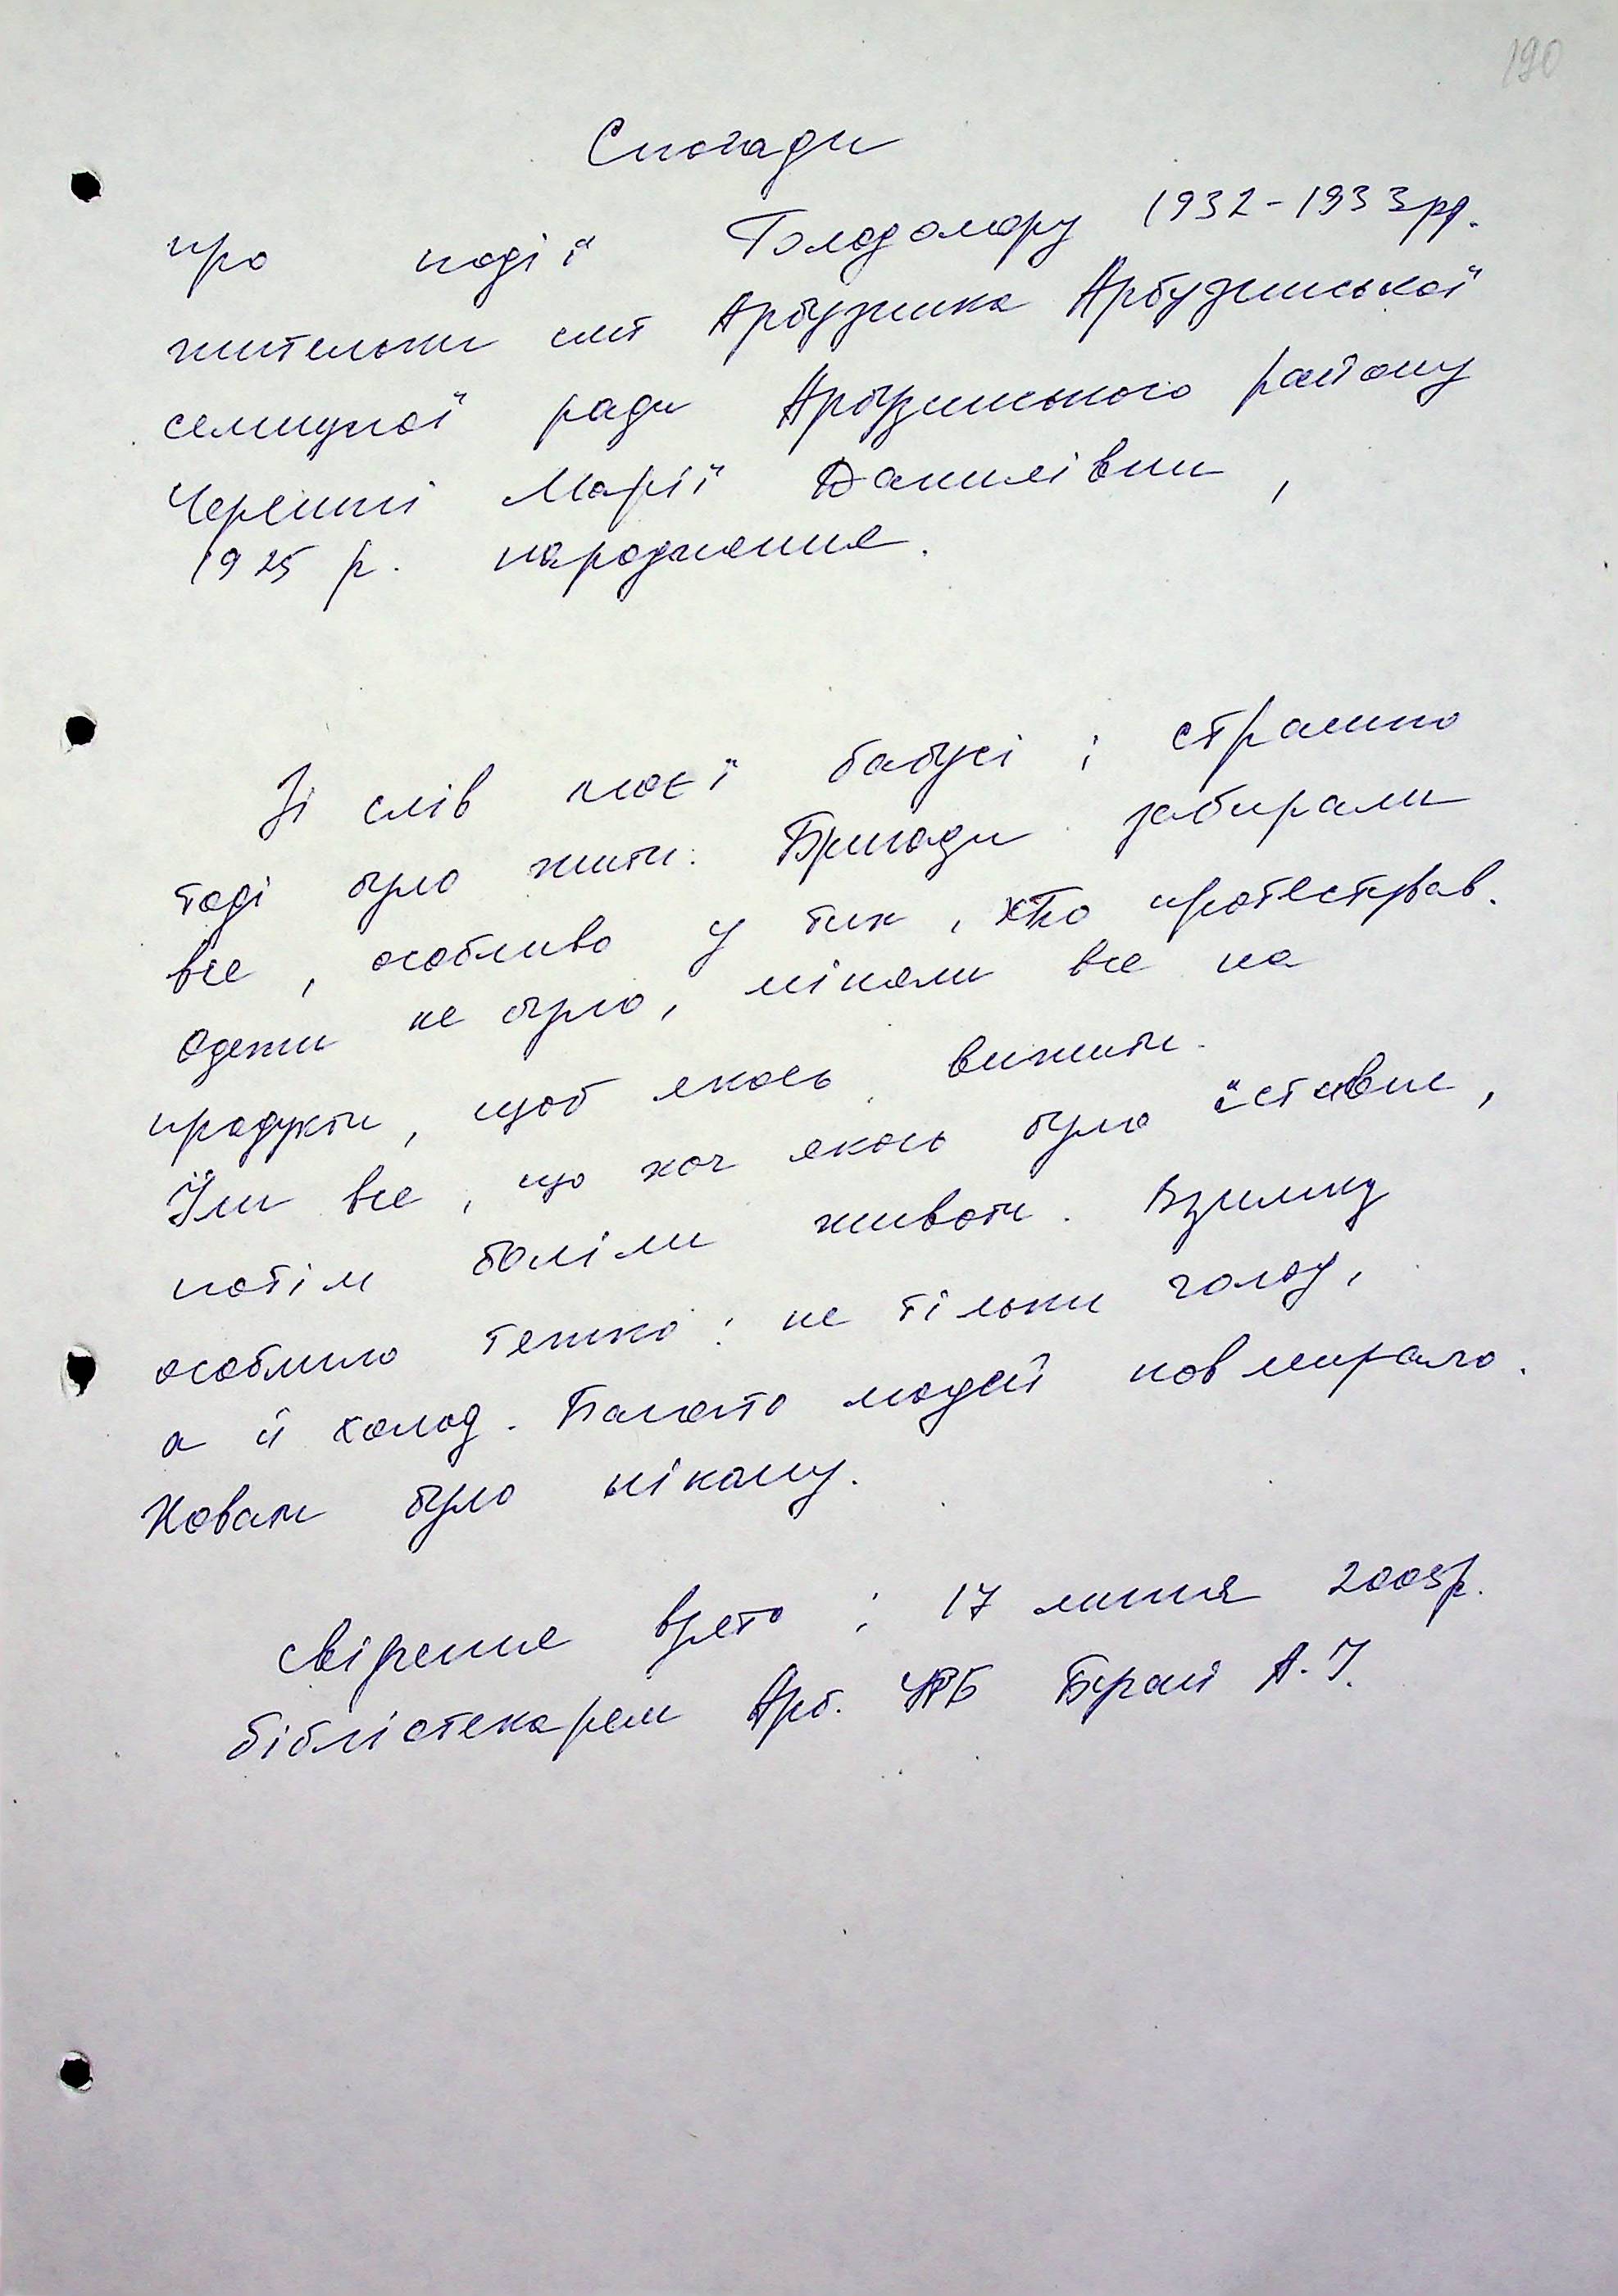 190
Спогади
про події Голодомору 1932-1933рр.
жительки смт Арбузинка Арбузинської
селищної ради Арбузинського району
Марії Данилівни,
1925 р. народження.
Зі слів моєї бабусі: страшно
тоді було жити. Бригади забирали
все, особливо у тих, хто протестував.
Одежи не було, міняли все на
продукти, щоб якось вижити.
Їли все, що хоч якось було їстивне,
потім боліли животи. Взимку
особливо тяжко: не тільки голод,
а й холод. Багато людей повмирало.
Ховати було нікому.
Свідчення взято: 17 липня 2008р.
бібліотекарем Арб. ЦРБ А. І.